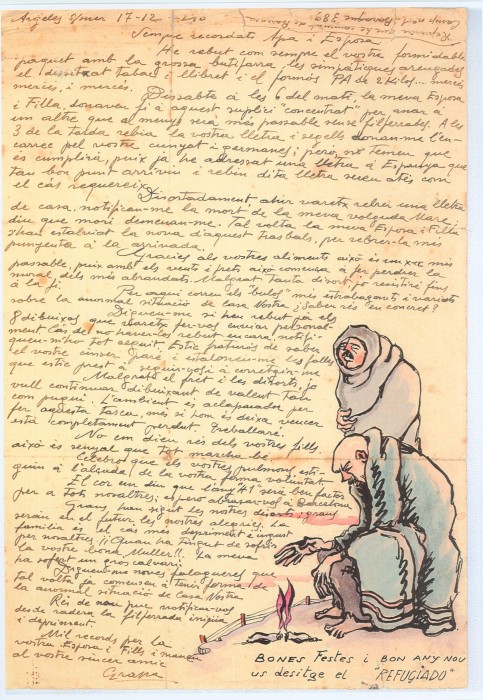 Argeles s/mer 17-12
Sempre recordats Apa i Esposa
He rebut com sempre el vostre formidable
paquet amb la grossa butifarra, les simpàtiques arengades
el desitjat tabac i llibret i el formós PA de 2 Kilos... mercès,
mercès, i mercès.
Dissabte à les 6 del matí, la meva Esposa
i Filla, donaven fi à aquest suplici "concentrat" per anar à
un altre que al menys serà més passable sens filferrada. A les
3 de la tarda rebia la vostra lletra i segells donan-me l'en-
carrec pel vostre cunyat i germanes; però no temeu que
es cumplirà, puix ja he adressat una lletra à Espanya, que
tan bon punt arrivin i rebin dita lletra seran atès com
el càs requereix.
Disortadament ahir varetx rebre una lletra
de casa, notifican-me la mort de la meva volguda Mare,
diu que morí demanan-me. Tal volta la meva Esposa i Filla
s'han estalviat la nova d'aquest trasbals, per rebrer-la més
punyenta à la arrivada.
Gracies als vostres aliments això és un xic més
passable, puix amb els vents i frets això comensa à fer perdrer la
moral dels més abrandats. Malgrat tanta disort, jo resistiré fins
à la fi.
Per aquí corren els "bulos" més estrabagants i variats
sobre la anormal situació de Casa Nostra ¿Saber rés "en concret?
Digueu-me si heu rebut ja els
8 dibuixos que varetx fer-vos enviar personal-
ment. Cas de no haver-les rebut encara, notifi-
queu-m'ho tot seguit. Estic fraturós de saber
el vostre sincer paré i estaloneu-me les falles
que estic prest à seguir-vos i à corretgir-me
Malgrat el fret i les disorts, jo
vull continuar dibuixant de valent tan
com pugui. L'ambient és aclaparador per
fer aquesta tasca, més si hom és deixa vencer
està completament perdut. Treballaré,
No em dieu rés dels vostres fills
això és senyal que tot marcha bé.
Celebro que els vostres pulmons esti-
guin à l'alçada de la vostra ferma voluntat
El cor em diu que l'any 41 serà benfactor
per a tots nosaltres; espero abraçar-vos à Barcelona
Grans han sigut les nostres disorts; grans
seràn en el futur les nostres alegries. La
familia és el càs més depriment e injust
per nosaltres; ¡¡Quan ha tingut de sofrir
la vostra bona Muller!! La meva
ha sofert un gros calvari.
Digueu-me noves falagueres que
tal volta ja comenseu à tenir forma de
la anormal situació de Casa Nostra
Rés de nou puc notificar-vos
desde darrera la filferrada iniqua
i depriment.
Mil records per la
vostra Esposa i Fills i maneu
al vostre sincer amic
Grapa
BONES Festes i BON ANY NOU
us desitge el "REFUGIADO"